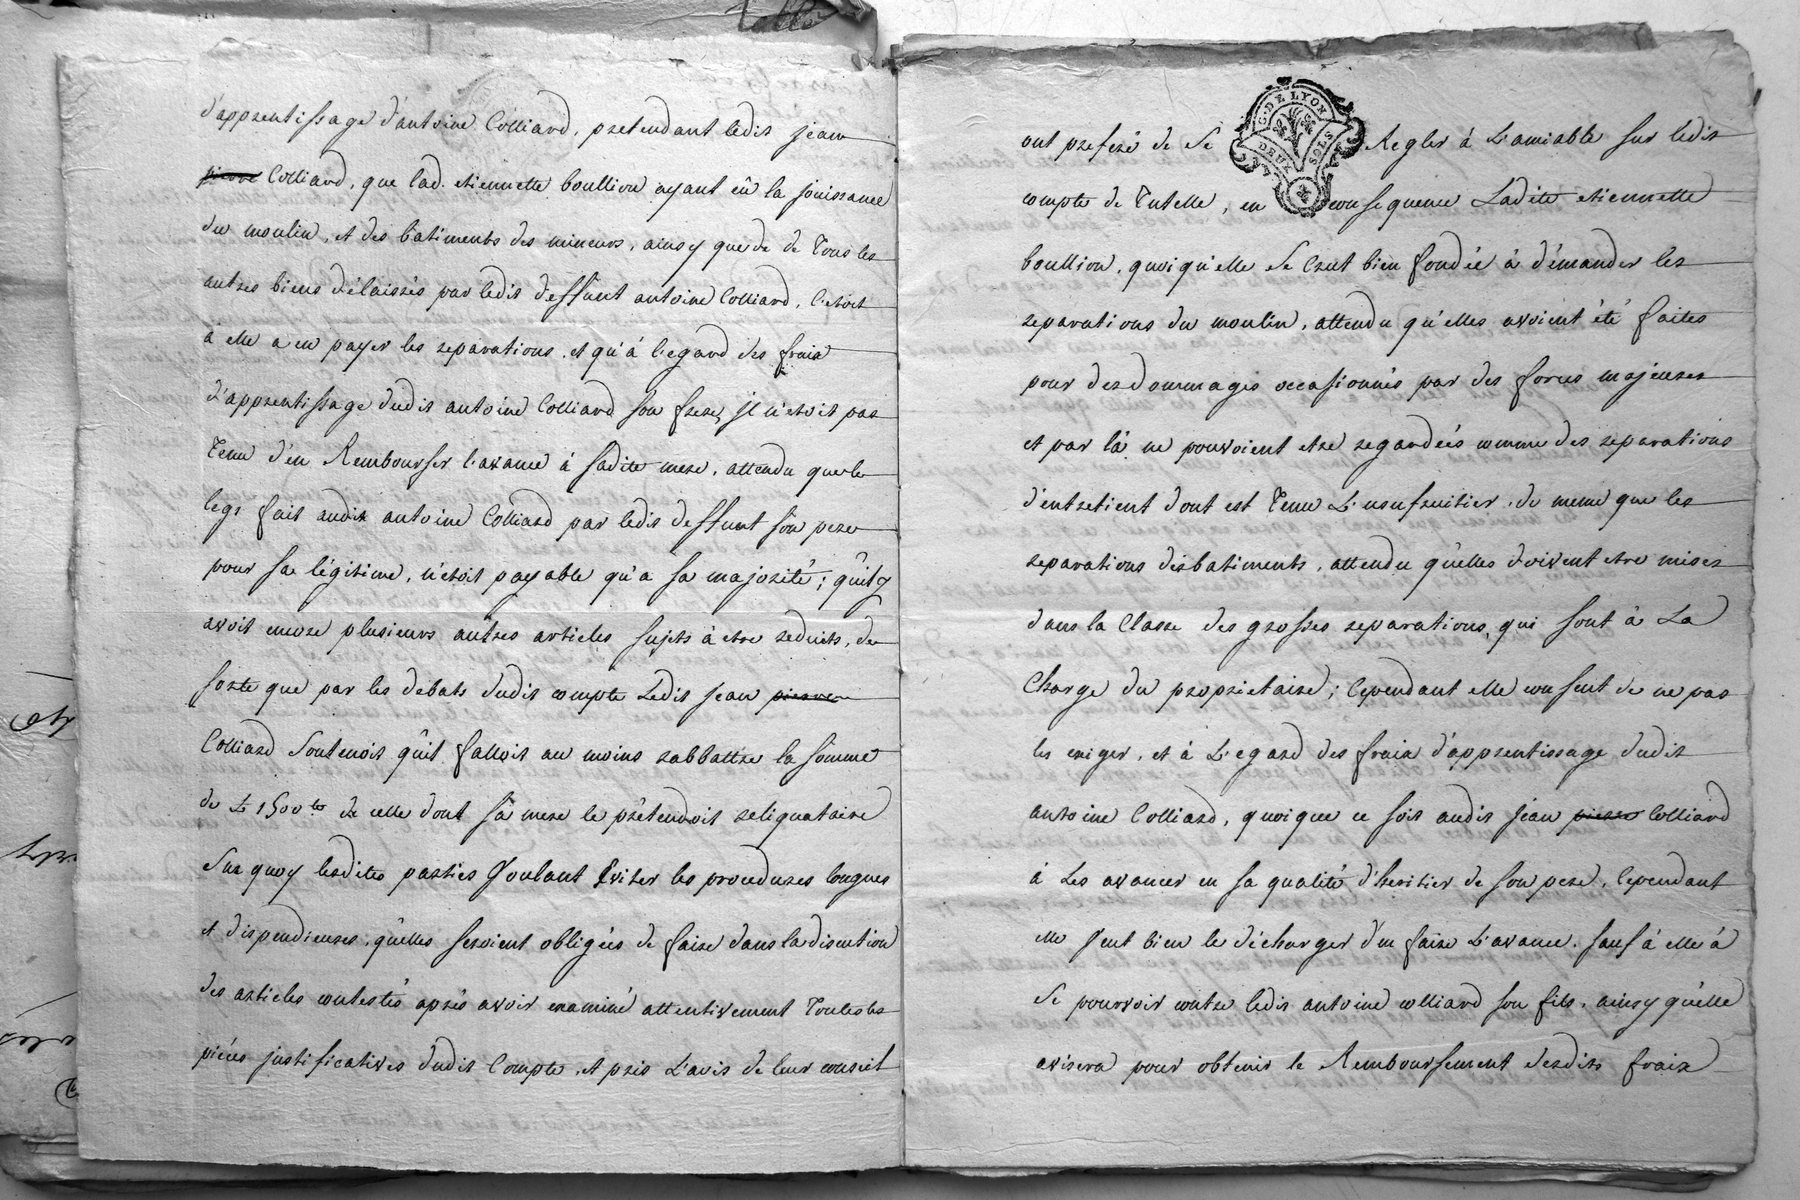 d'apprentissage d'antoine Colliard, pretendant ledit jean
pierre Colliard, que lad. etiennette boullion ayant eû la jouissance
du moulin, et des batiments des mineurs, ainsy que de de Tous les
autres biens délaissés par ledit deffunt antoine Colliard, C'etoit
à elle a en payer les reparations, et qu'à l'egard des fraix
d'apprentissage dudit antoine Colliard son frere, il n'etoit pas
Tenu d'en Rembourser l'avance à sadite mere, attendu que le
legs fait audit antoine Colliard par ledit deffunt son pere
pour sa légitime, n'etoit payable qu'a sa majorité; qu'il y
avoit encore plusieurs autres articles sujets à etre reduits, de
sorte que par les debats dudit compte Ledit jean pierre
Colliard Soutenoit qu'il falloit au moins rabbattre la somme
de L 1500 ts de celle dont sa mere le prétendoit reliquataire
Sur quoy lesdites parties Voulant Eviter les procedures longues
et dispendieuses, qu'elles seroient obligées de faire dans la discution
des articles contestés après avoir examiné attentivement Toutes les
pièces justificatives dudit Compte, et pris L'avis de leur conseil
ont preferé de Se Regler à L'amiable sur ledit
compte de Tutelle, en consequence Ladite etiennette
boullion, quoiqu'elle se Crut bien fondée à démander les
reparations du moulin, attendu qu'elles avoient été faites
pour des dommages occasionnés par des forces majeures
et par là ne pouvoient etre regardées comme des reparations
d'entretient dont est Tenu L'usufruitier, de meme que les
reparations des batiments, attendu qu'elles doivent etre mises
dans la Classe des grosses reparations, qui sont à La
Charge du proprietaire; Cependant elle consent de ne pas
les exiger, et à L'egard des fraix d'apprentissage dudit
antoine Colliard, quoique ce soit audit jean pierre Colliard
à Les avancer en sa qualité d'heritier de son pere, Cependant
elle veut bien le décharger d'en faire L'avance, sauf à elle à
Se pourvoir contre ledit antoine colliard son fils, ainsy qu'elle
avisera pour obtenir le Remboursement desdits fraix
G. DE LYON
DEUX SOLS